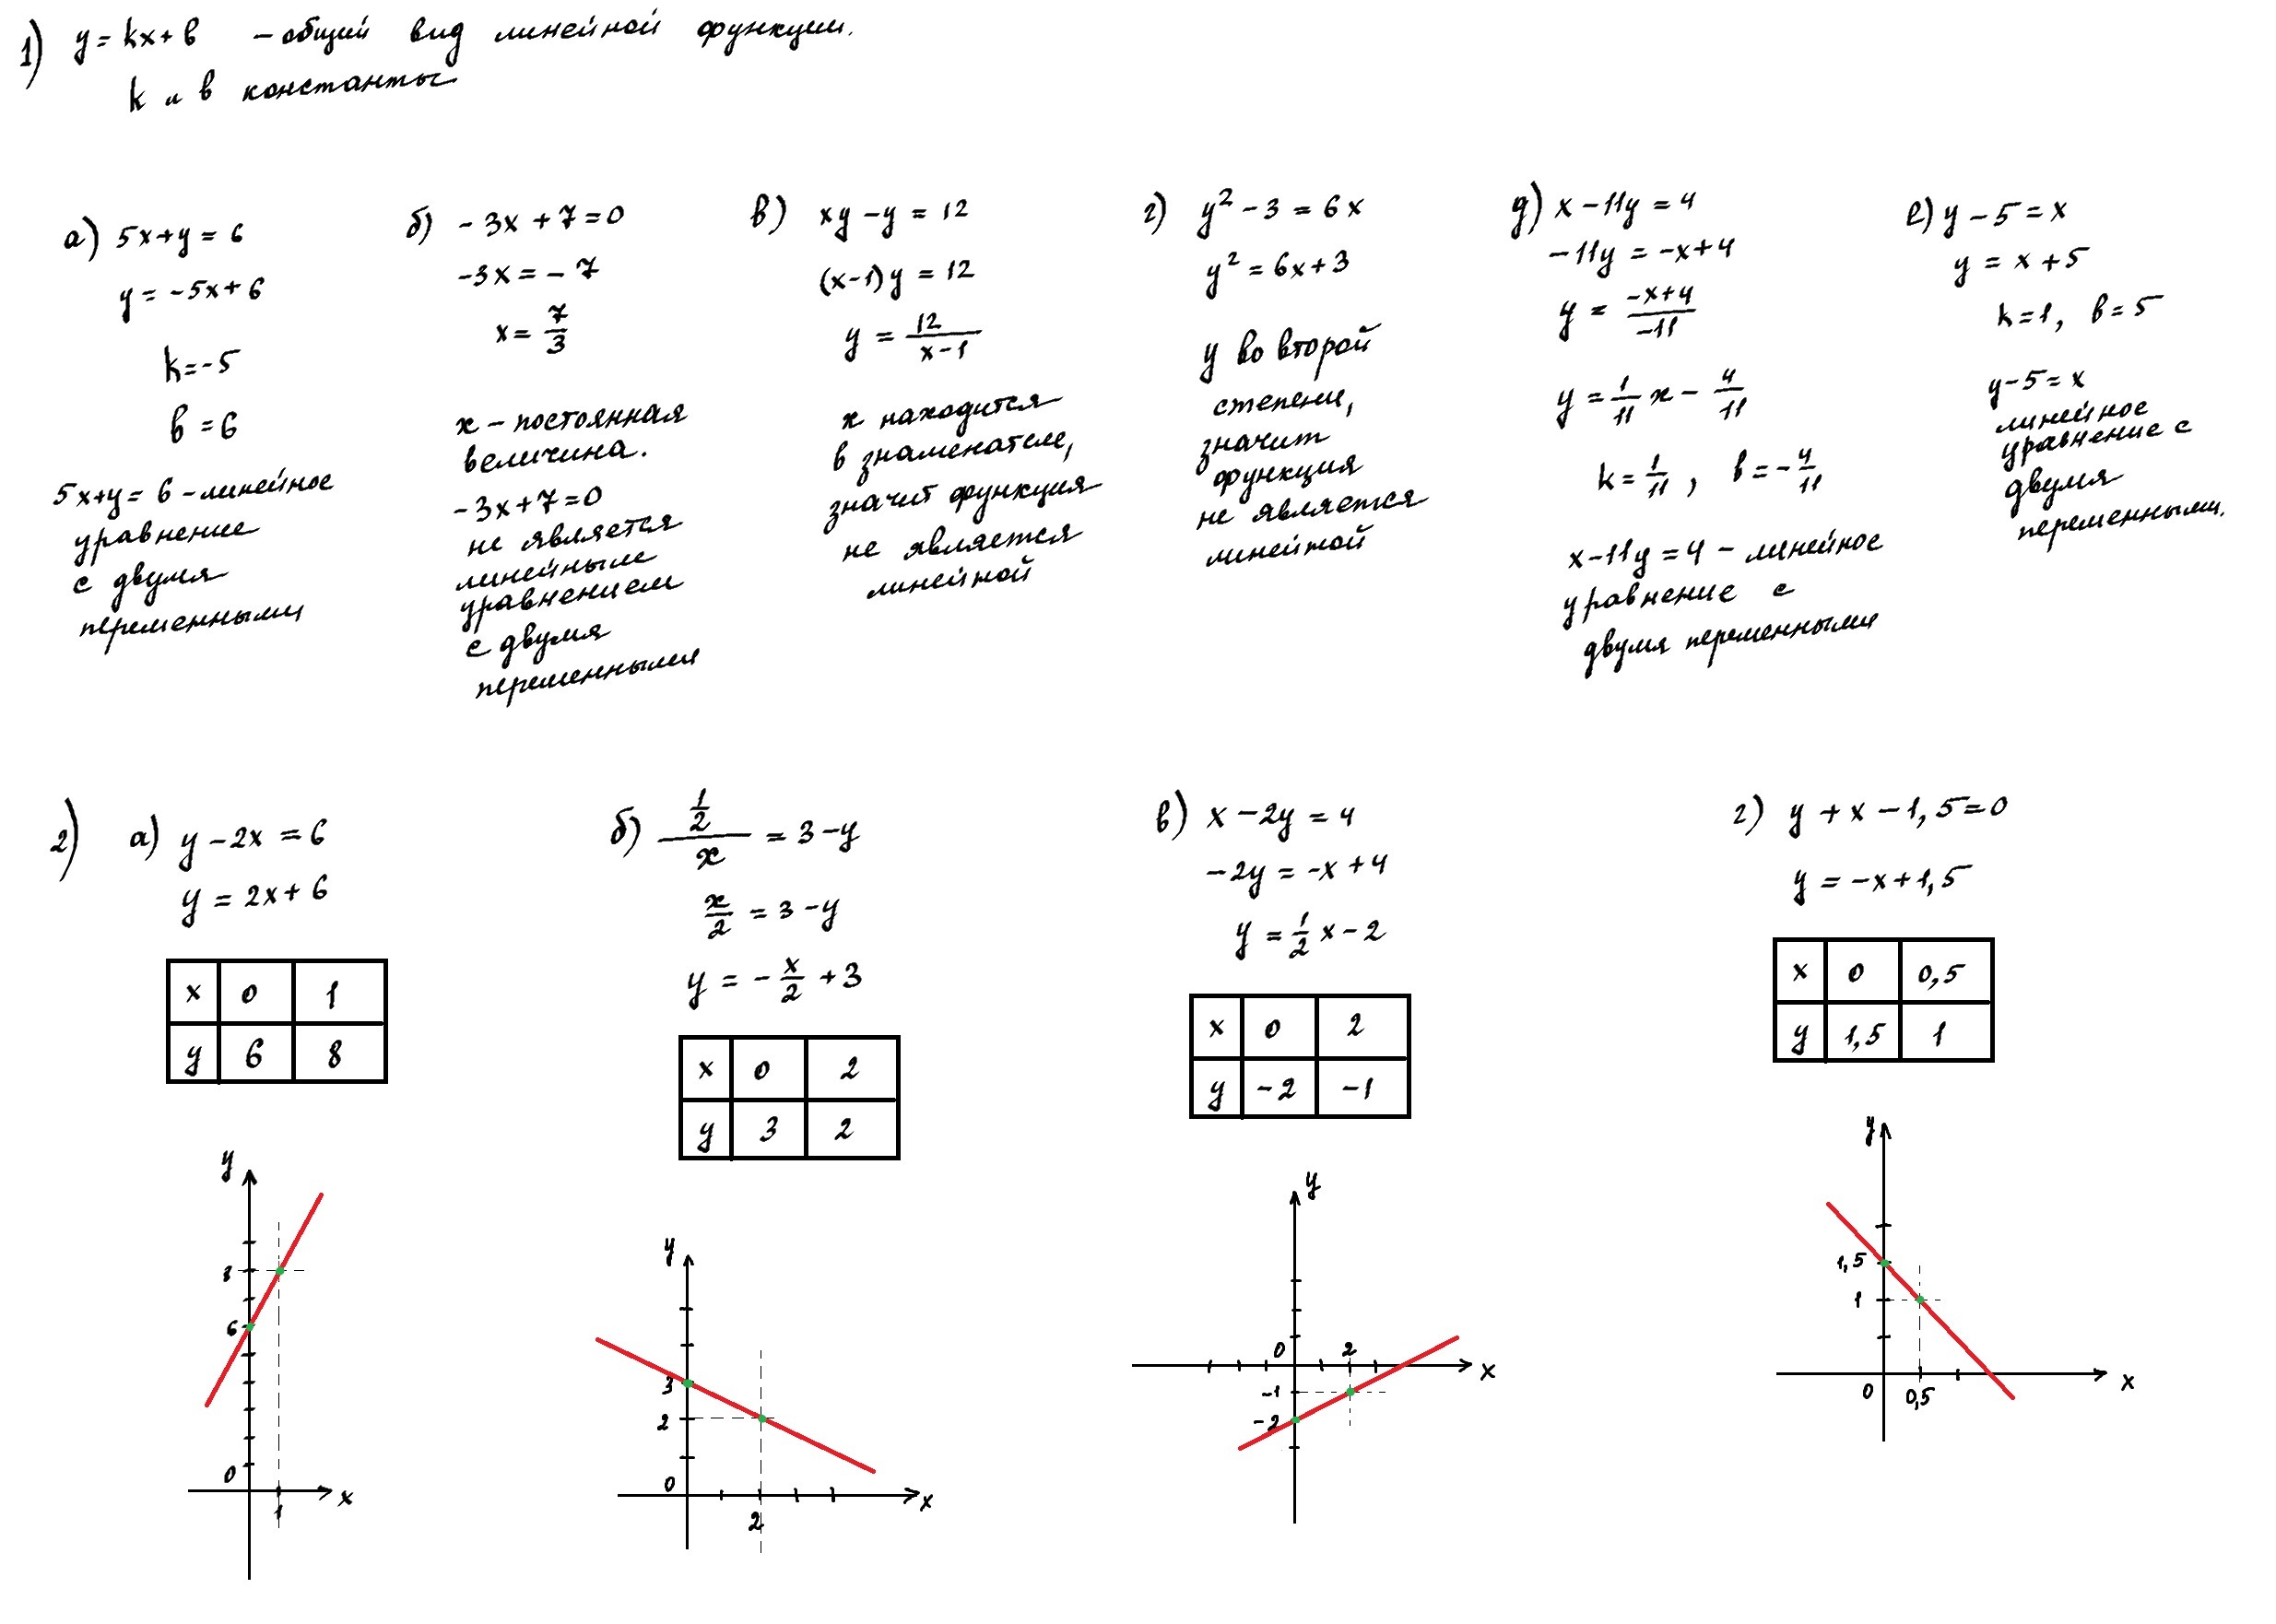 1) y = kx + b – общий вид линейной функции.
k и b константы
а) 5x+y = 6
y = -5x+6
k = -5
b = 6
5x+y = 6 - линейное
уравнение
с двумя
переменными
б) -3x + 7 = 0
-3x = -7
x = 7/3
x – постоянная
величина.
-3x+7=0
не является
линейным
уравнением
с двумя
переменными
в) xy - y = 12
(x-1)y = 12
y = 12/(x-1)
x находится
в знаменателе,
значит функция
не является
линейной
г) y² - 3 = 6x
y² = 6x+3
y во второй
степени,
значит
функция
не является
линейной
д) x - 11y = 4
-11y = -x+4
y = (-x+4)/(-11)
y = 1/11 x - 4/11
k = 1/11, b = -4/11
x-11y = 4 - линейное
уравнение с
двумя переменными
е) y - 5 = x
y = x + 5
k=1, b = 5
y-5 = x
линейное
уравнение с
двумя
переменными.
2) а) y - 2x = 6
y = 2x + 6
x 0 1
y 6 8
y
8
6
0
x
1
б) (1/2)/x = 3 - y
x/2 = 3 - y
y = - x/2 + 3
x 0 2
y 3 2
y
3
2
0
x
2
в) x - 2y = 4
-2y = -x + 4
y = 1/2 x - 2
x 0 2
y -2 -1
y
0 2
x
-1
-2
г) y + x - 1,5 = 0
y = -x + 1,5
x 0 0,5
y 1,5 1
y
1,5
1
0 0,5
x